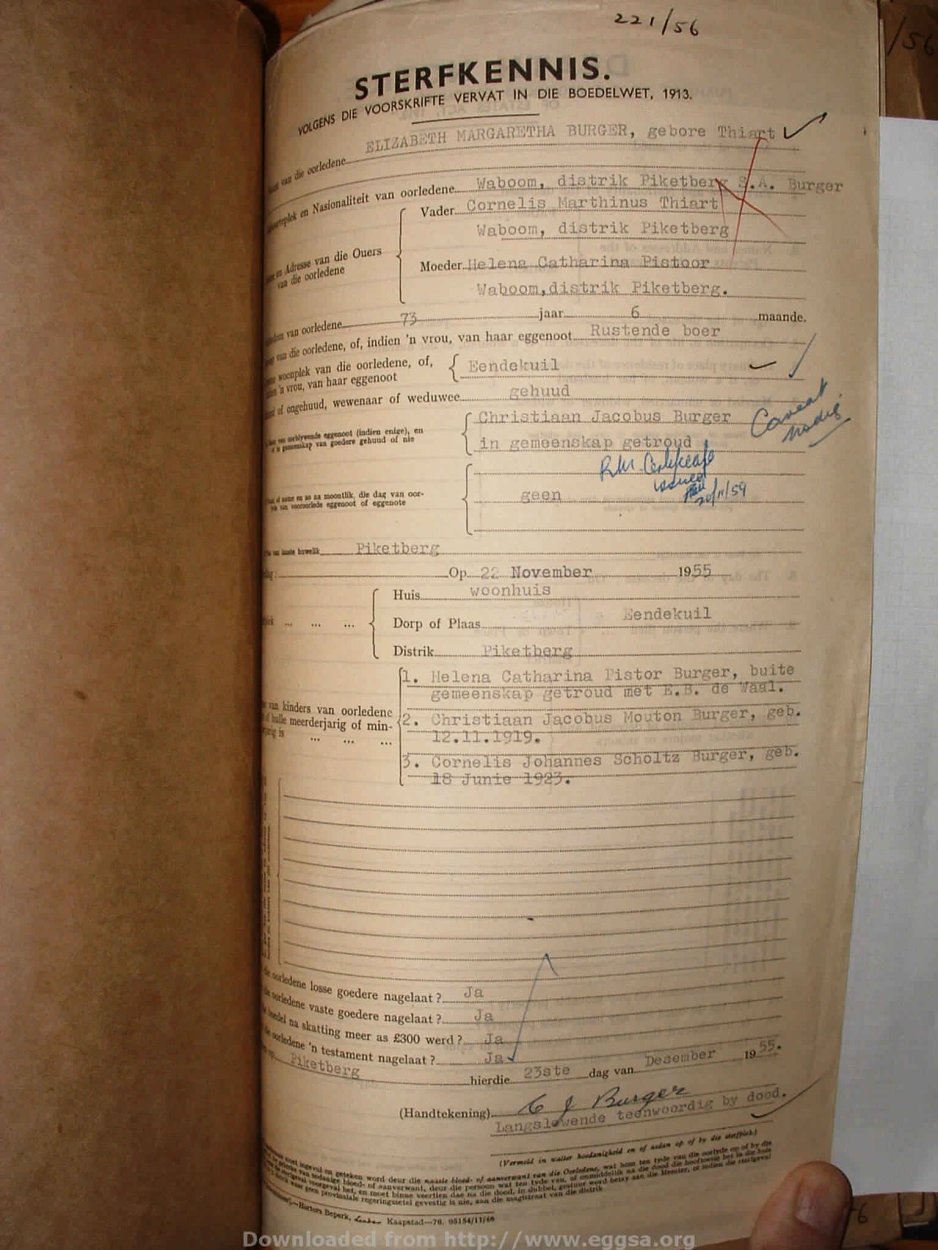 221/56
/56
STERFKENNIS.
VOLGENS DIE VOORSKRIFTE VERVAT IN DIE BOEDELWET, 1913.
van die oorledene ELIZABETH MARGARETHA BURGER, gebore Thiart
en Nasionaliteit van oorledene Waboom, distrik Piketberg S.A. Burger
Vader Cornelis Marthinus Thiart
Waboom, distrik Piketberg
en Adresse van die Ouers
van die oorledene
Moeder Helena Catharina Pistoor
Waboom, distrik Piketberg.
van oorledene 73 jaar 6 maande.
van die oorledene, of, indien 'n vrou, van haar eggenoot Rustende boer
woonplek van die oorledene, of,
'n vrou, van haar eggenoot
Eendekuil
of ongehuud, wewenaar of weduwee gehuud
van oorblywende eggenoot (indien enige), en
of in gemeenskap van goedere gehuud of nie
Christiaan Jacobus Burger
in gemeenskap getroud
Caveat
nodig
issued
20/11/59
of name en so na moontlik, die dag van oor-
van vooroorlede eggenoot of eggenote
geen
van laaste huwelik Piketberg
Op 22 November 1955
Huis woonhuis
Dorp of Plaas Eendekuil
Distrik Piketberg
van kinders van oorledene
of hulle meerderjarig of min-
is
1. Helena Catharina Pistor Burger, buite
gemeenskap getroud met E.B. de Waal.
2. Christiaan Jacobus Mouton Burger, geb.
12.11.1919.
3. Cornelis Johannes Scholtz Burger, geb.
18 Junie 1923.
oorledene losse goedere nagelaat? Ja
oorledene vaste goedere nagelaat? Ja
boedel na skatting meer as £300 werd? Ja
oorledene 'n testament nagelaat? Ja
Piketberg hierdie 23ste dag van Desember 1955.
(Handtekening) C J Burger
Langslewende teenwoordig by dood.
(Vermeld in watter hoedanigheid en of aldan op of by die sterfplek)
Kaapstad—76.
76
Downloaded from http://www.eggsa.org